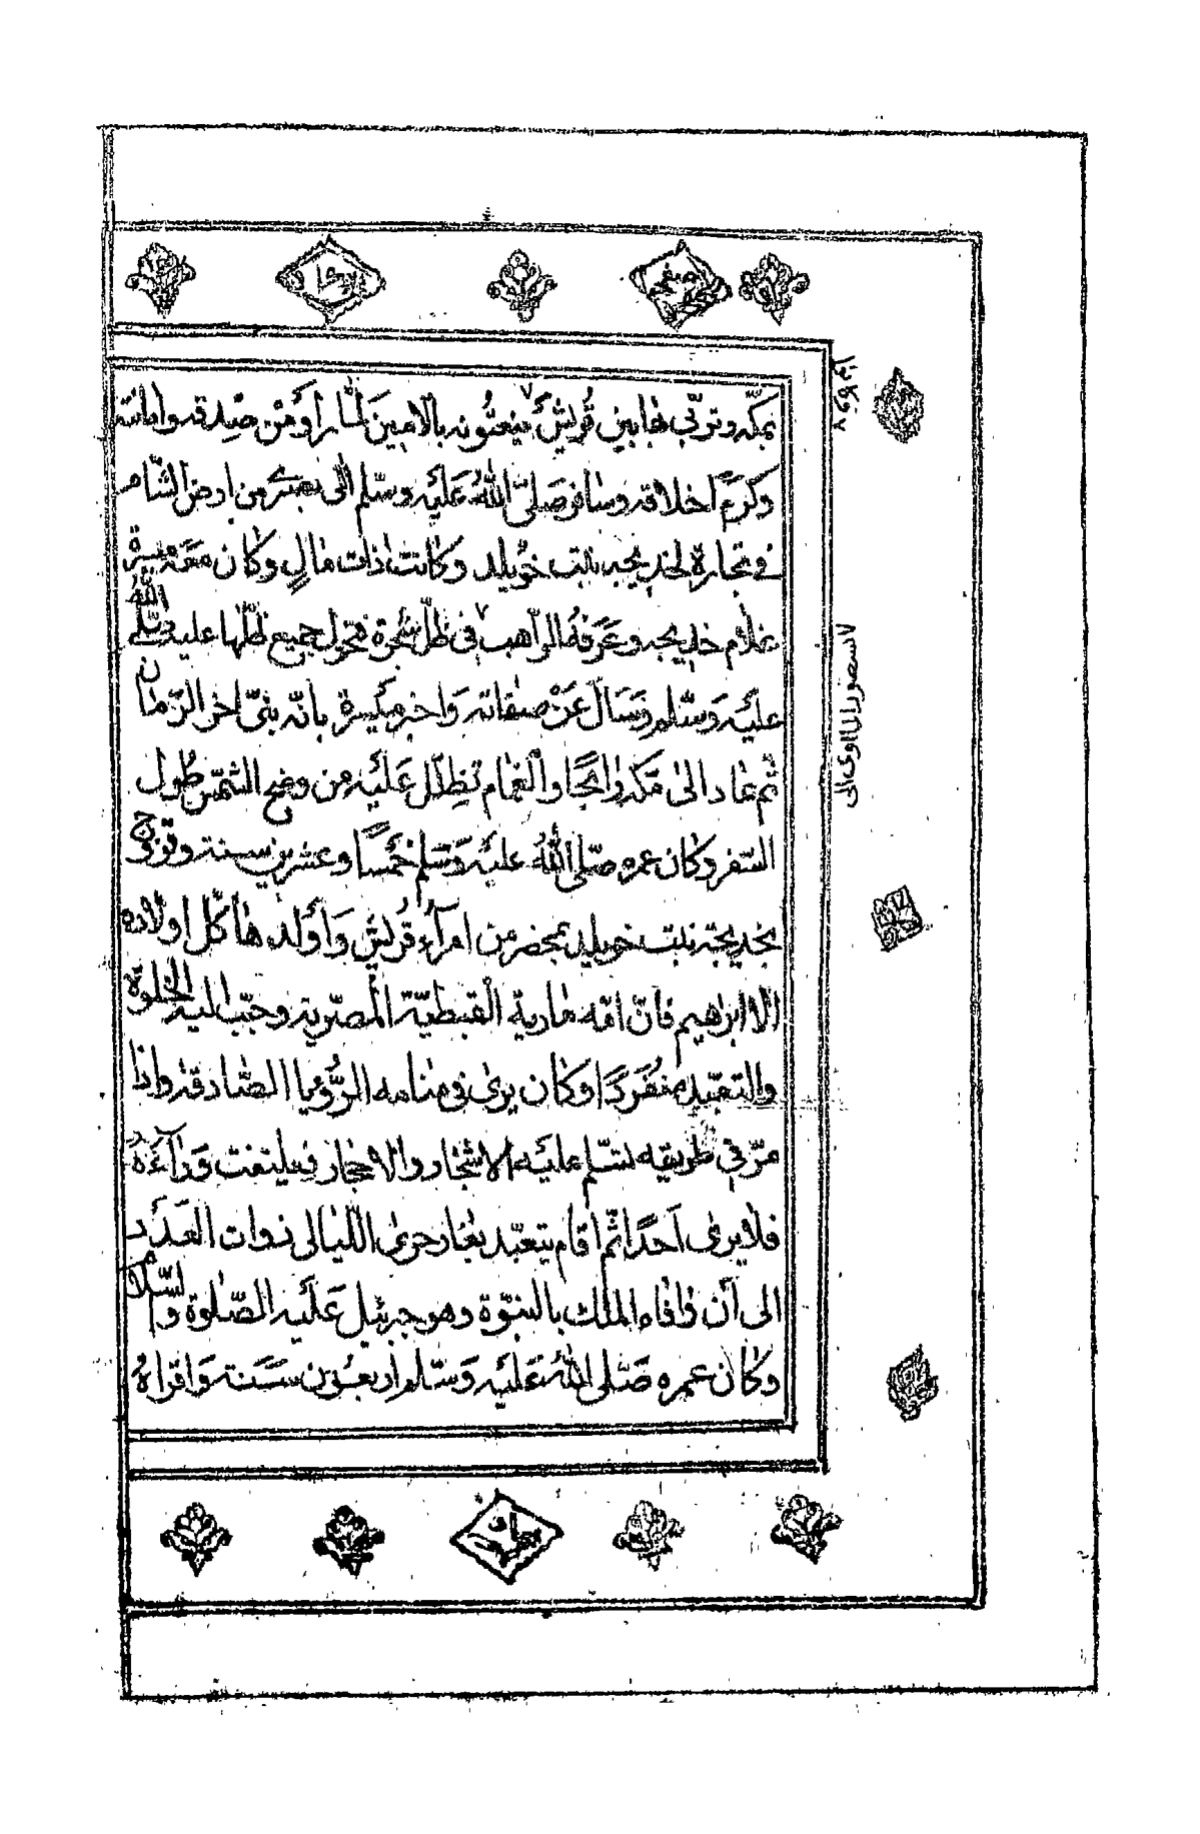 بمكّه وتربّى بها بين قُريش ينعتونه بالامين لما راوْ مِنْ صِدقه وامانته
وكرَم اخلاقه وسافر صَلّى اللهُ عَليْه وسَلّم الى بصرى من ارض الشّام
فى تجارة لخديجه بنت خويلد وكانت ذات مالٍ وكان معه ميسرة
غلام خديجه وعَرَفهُ الرّاهب فى ظلّ شجرة فتحول جميع ظلّها عليه صَلّى اللهُ
عليْه وَسَلّم وَسَالَ عَنْ صفاته وَاخبر ميْسرة بانّه نبىّ اخر الزّمان
ثُم عاد الىٰ مَكه رابحًا والغمام تظِلّل عَليْه من وضح الشّمس طول
السّفر وكان عمره صَلّى اللهُ عليْه وَسَلم خمْسًا وعشرين سنة وتزوّج
بخديجة بنت خويلد بمحضر من امرآء قُريش وَاوْلدهاكلّ اولاده
الا ابراهيم فانّ امّه مارية القبطيّة المصريه وحبّب اليه الخلوة
والتعبّد منفردًا وكان يرى فى منامه الرُّؤيا الصّادقه واذا
مرّ فى طريقه يسَلم عليْه الاشجار والاحجار فيلتفت وَرآءَهُ
فلا يرى اَحدًا ثم اقام يتعبّد بغار حرى اللّيالى ذوات العَدَد
الى اَن وافاه الملك بالنبوّة وهو جبرئيل عَليْه الصّلوة والسّلام
وكان عمره صَلّى اللهُ عَليْه وَسَلم اربعين سَنة وَاقراهُ